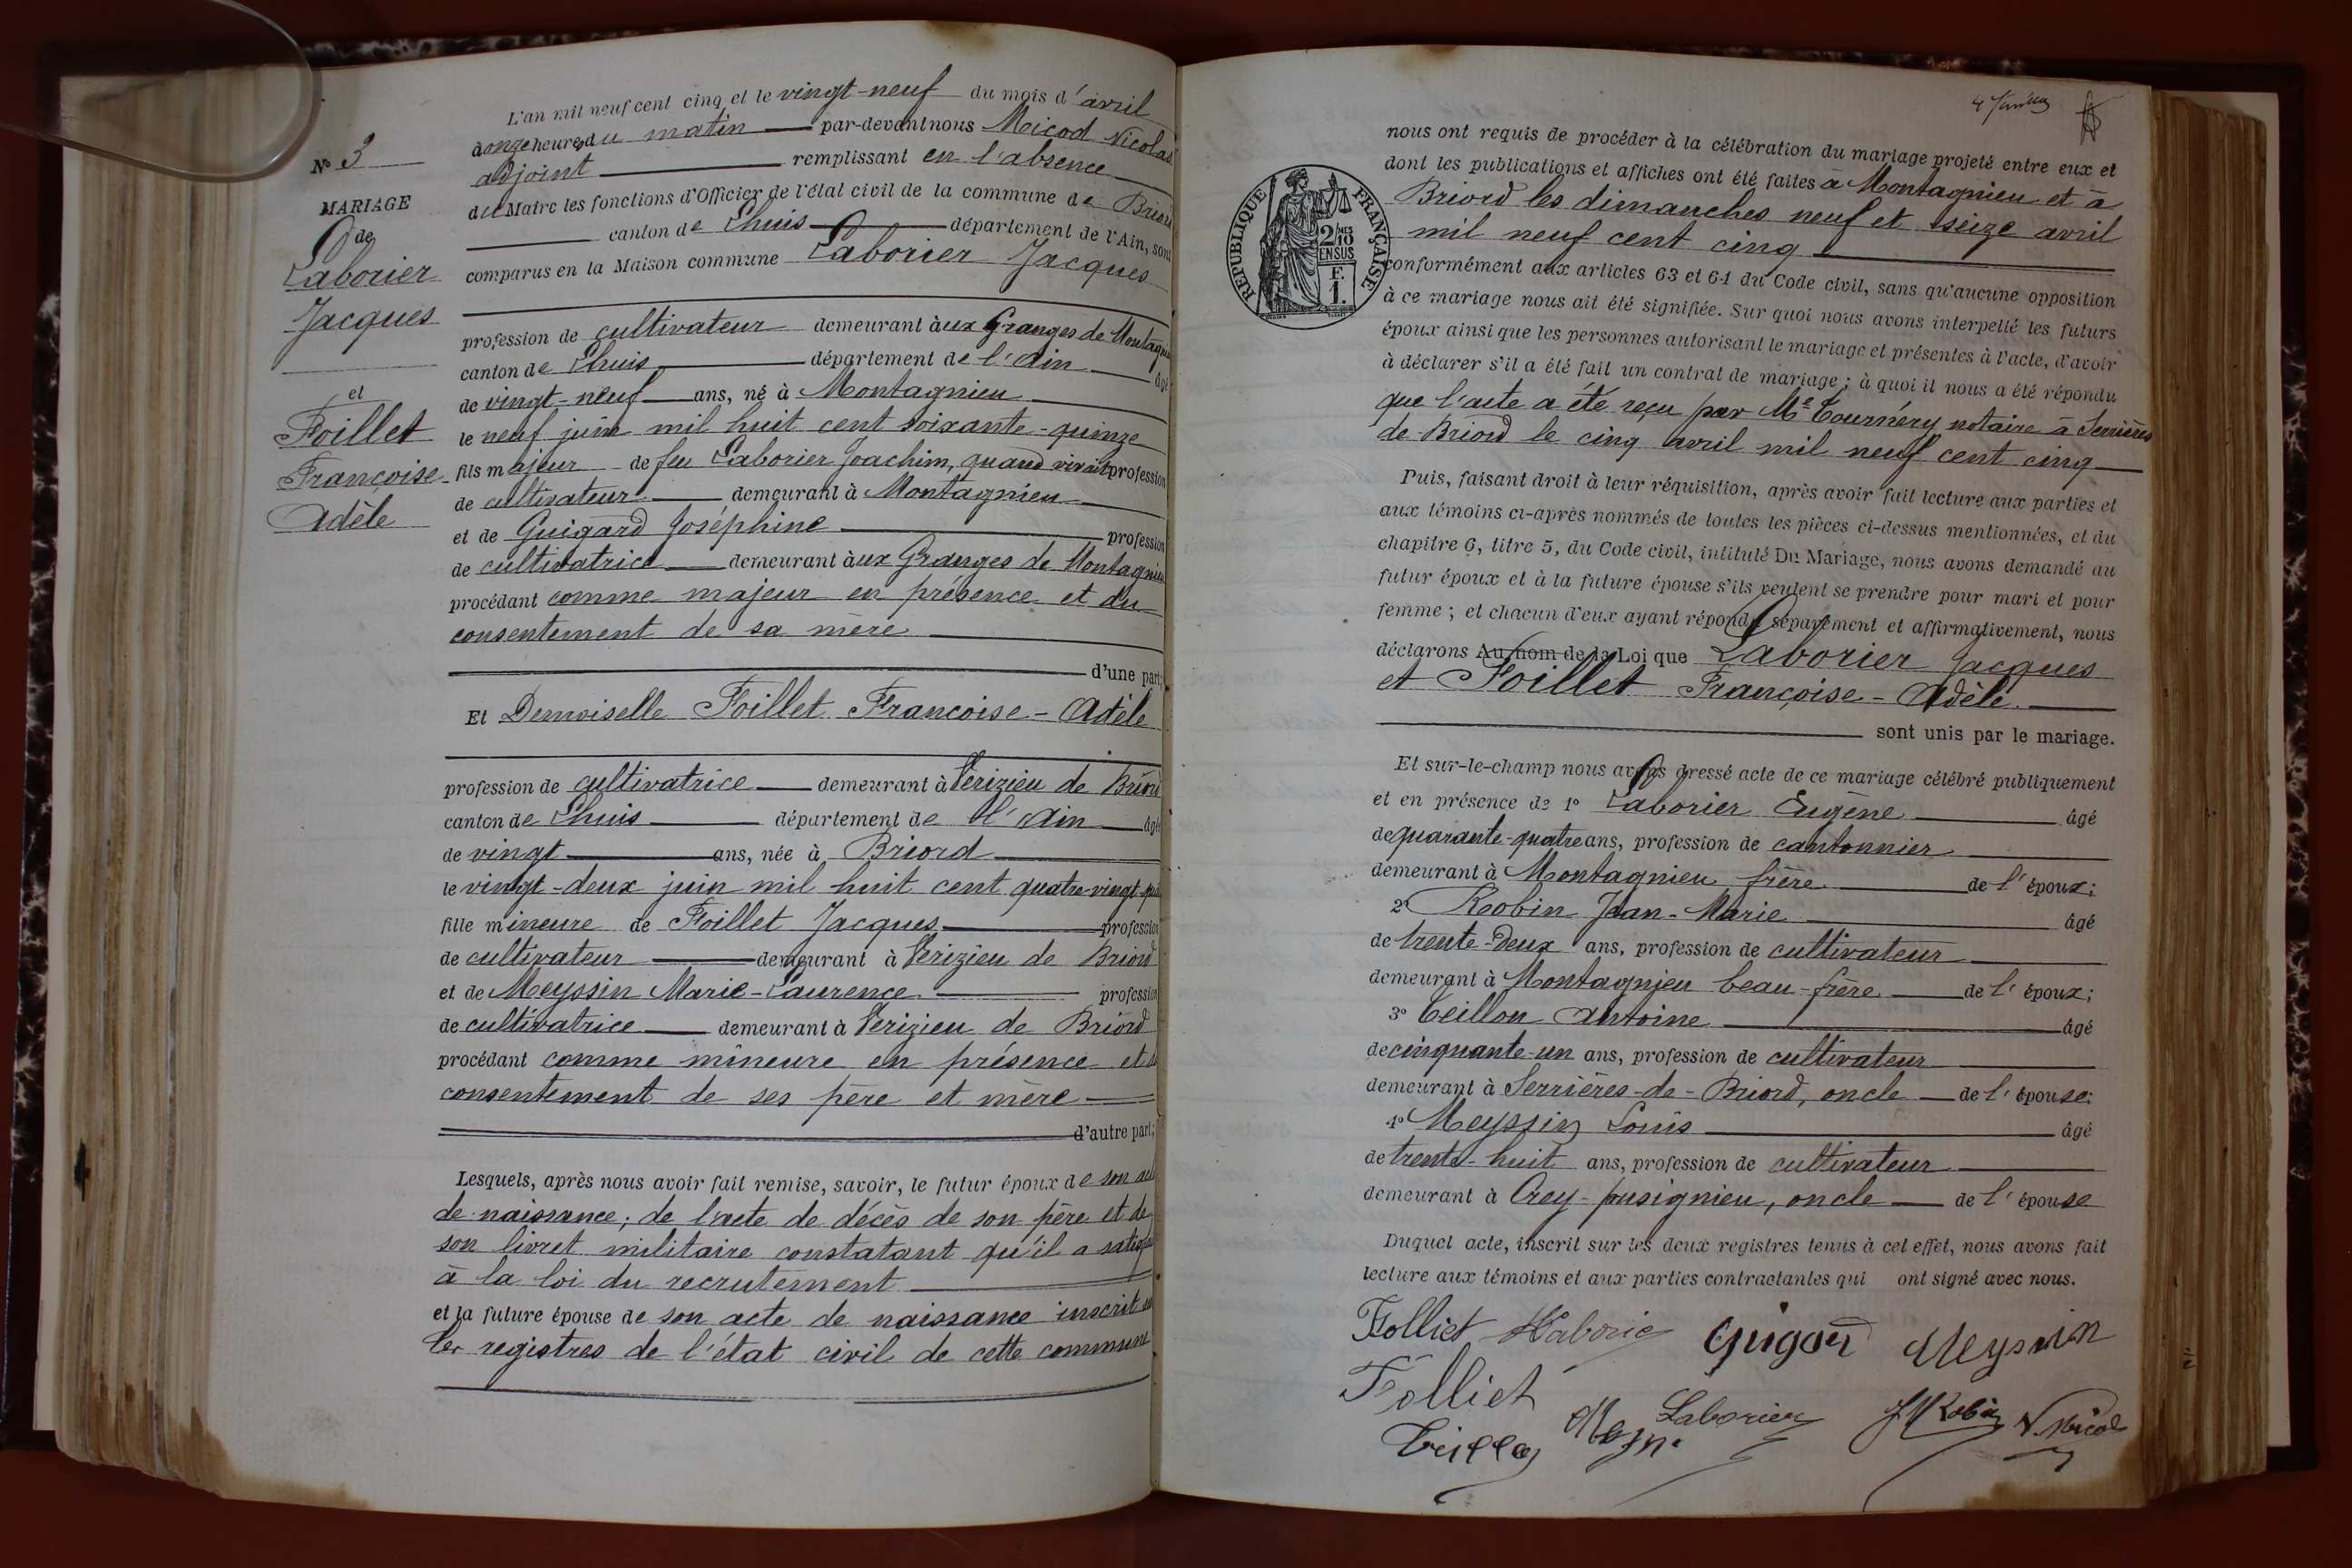 N° 3
MARIAGE
de
Laborier
Jacques
et
Foillet
Françoise-
Adèle
L'an mil neuf cent cinq et le vingt-neuf du mois d'avril
à onze heures du matin par-devant nous Micod Nicolas
adjoint remplissant en l'absence
du Maire les fonctions d'Officier de l'état civil de la commune de Briord
canton de Lhuis département de l'Ain, sont
comparus en la Maison commune Laborier Jacques
profession de cultivateur demeurant aux Granges de Montagnieu
canton de Lhuis département de l'Ain âgé
de vingt-neuf ans, né à Montagnieu
le neuf juin mil huit cent soixante-quinze
fils majeur de feu Laborier Joachim, quand vivait profession
de cultivateur demeurant à Montagnieu
et de Guigard Joséphine profession
de cultivatrice demeurant aux Granges de Montagnieu
procédant comme majeur en présence et du
consentement de sa mère
d'une part;
Et Demoiselle Foillet Françoise-Adèle
profession de cultivatrice demeurant à Vérizieu de Briord
canton de Lhuis département de l'Ain âgé
de vingt ans, née à Briord
le vingt-deux juin mil huit cent quatre-vingt
fille mineure de Foillet Jacques profession
de cultivateur demeurant à Vérizieu de Briord
et de Meyssin Marie-Laurence profession
de cultivatrice demeurant à Vérizieu de Briord
procédant comme mineure en présence et du
consentement de ses père et mère
d'autre part;
Lesquels, après nous avoir fait remise, savoir, le futur époux de son acte
de naissance; de l'acte de décès de son père et de
son livret militaire constatant qu'il a satisfait
à la loi du recrutement
et la future épouse de son acte de naissance inscrit sur
les registres de l'état civil de cette commune
4
RÉPUBLIQUE FRANÇAISE
2/10 MES
EN SUS
F.
1.
nous ont requis de procéder à la célébration du mariage projeté entre eux et
dont les publications et affiches ont été faites à Montagnieu et à
Briord les dimanches neuf et seize avril
mil neuf cent cinq
conformément aux articles 63 et 64 du Code civil, sans qu'aucune opposition
à ce mariage nous ait été signifiée. Sur quoi nous avons interpellé les futurs
époux ainsi que les personnes autorisant le mariage et présentes à l'acte, d'avoir
à déclarer s'il a été fait un contrat de mariage; à quoi il nous a été répondu
que l'acte a été reçu par Me Tournéry notaire à Serrières
de-Briord le cinq avril mil neuf cent cinq
Puis, faisant droit à leur réquisition, après avoir fait lecture aux parties et
aux témoins ci-après nommés de toutes les pièces ci-dessus mentionnées, et du
chapitre 6, titre 5, du Code civil, intitulé Du Mariage, nous avons demandé au
futur époux et à la future épouse s'ils veulent se prendre pour mari et pour
femme; et chacun d'eux ayant répondu séparément et affirmativement, nous
déclarons Au nom de la Loi que Laborier Jacques
et Foillet Françoise-Adèle
sont unis par le mariage.
Et sur-le-champ nous avons dressé acte de ce mariage célébré publiquement
et en présence de 1° Laborier Eugène âgé
de quarante-quatre ans, profession de cantonnier
demeurant à Montagnieu frère de l'époux;
2° Robin Jean-Marie âgé
de trente-deux ans, profession de cultivateur
demeurant à Montagnieu beau-frère de l'époux;
3° Teillon Antoine âgé
de cinquante-un ans, profession de cultivateur
demeurant à Serrières-de-Briord, oncle de l'épouse;
4° Meyssin Louis âgé
de trente-huit ans, profession de cultivateur
demeurant à Creys-pusignieu, oncle de l'épouse
Duquel acte, inscrit sur les deux registres tenus à cet effet, nous avons fait
lecture aux témoins et aux parties contractantes qui ont signé avec nous.
Folliet Laborier Guigard Meyssin
Folliet
Laborier JM Robin N. Micod